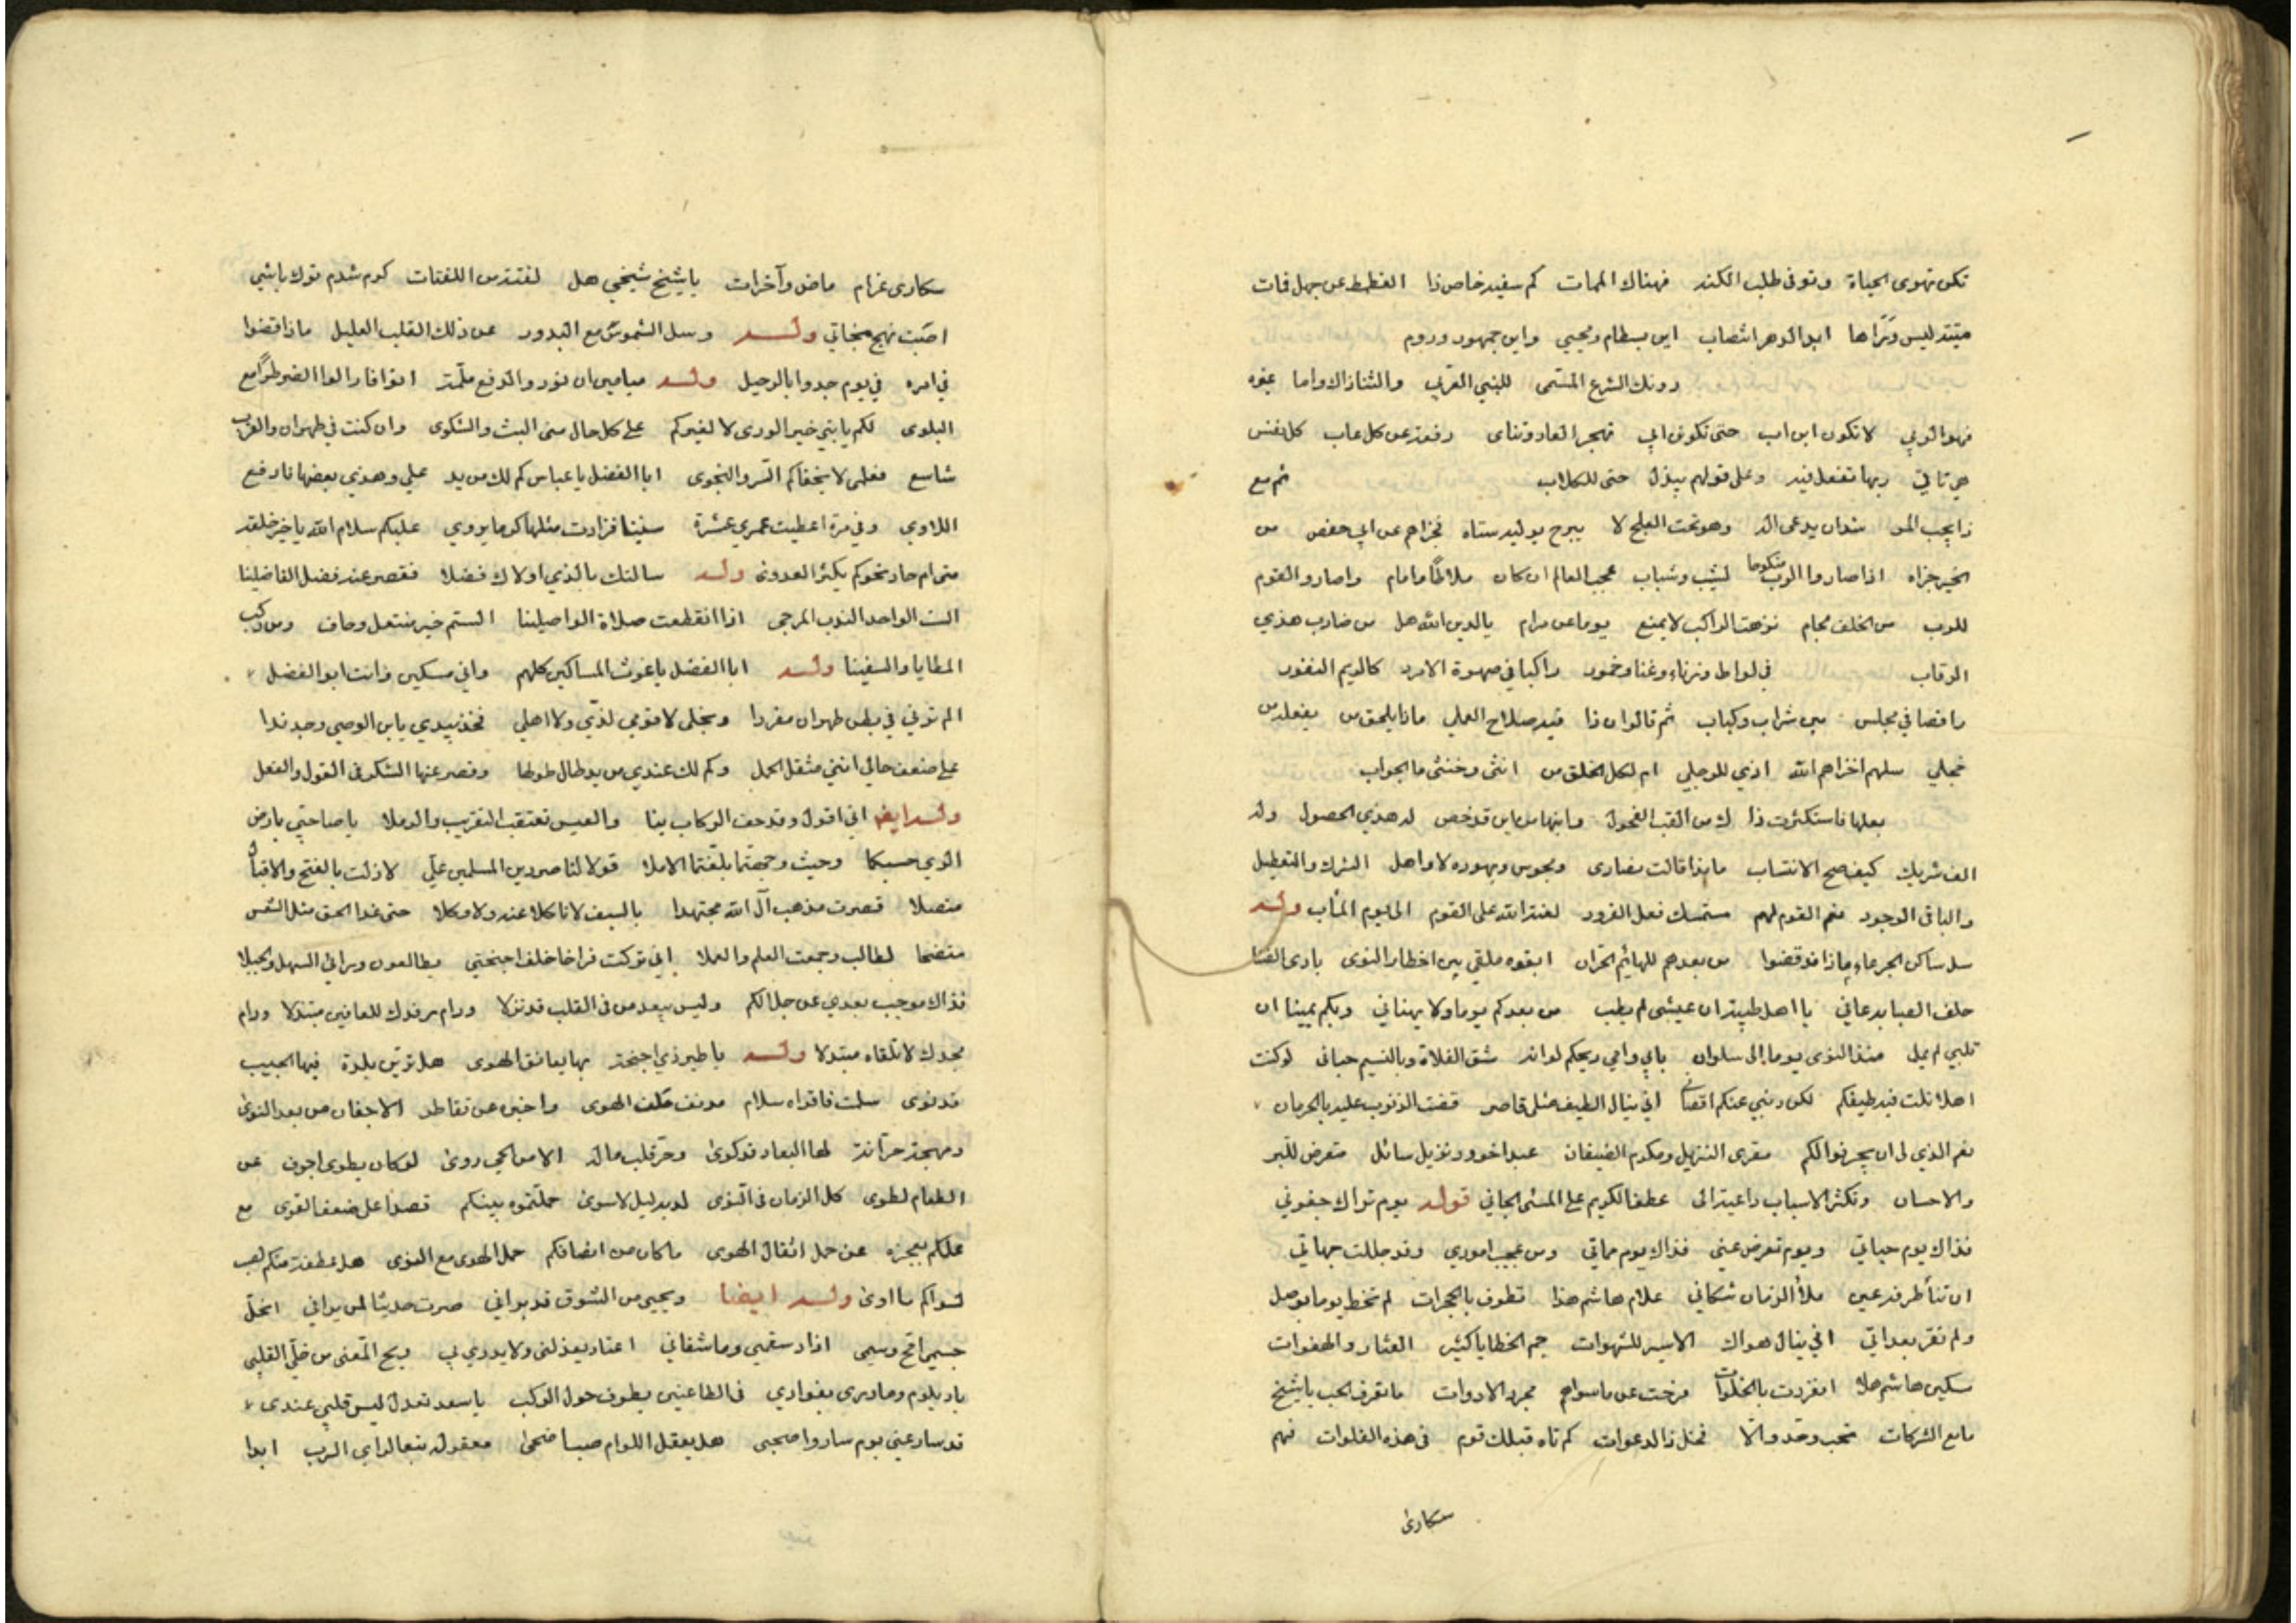 تكن تهوى الحياة وتوفى طلب الكند فهناك الممات كم سفيه خاض ذا الغطمط عن جهل فات
ميتته ليس وترًا ها ابد الدهر انتصاب اين بسطام ويحيى واين جمهور وروم
دونك الشرع المسمى للنبي العربي والثنا ذاك واما غيره
فهو الوبي لا تكون ابن اب حتى تكون ابي تهجر العاد وتناى وفوز عن كل عاب كل نفس
هي تاتي ربها تفعل فيه وعلى قولهم يبذل حتى للكلاب ثم مع
ذا يجب المر وهو تحت العلج لا يبرح عن ابي حفص من
الخير جزاه اذا صاروا الرب منكوحا لشيب وشباب عجب العالم ان كان ملاطًا وامام واصاروا القوم
للرب من الخلف مجام نزهت الراكب لا يمنع يوما عن مرام يا لدين الله هل من ضارب هذي
الرقاب في لواط وزناء وغنا وخمور راكبا في صهوة الامرد كالريم النفور
راقصا في مجلس بين شراب وكباب ثم قالوا ان ذا فيه صلاح العلي ماذا يلحق من يفعله من
خجلي سلهم اخزاهم الله اذي للرجلي ام لكل الخلق من انثى وخنثى ما الجواب
بعلها فاستكثرت ذا لك من القب الفحول وابنها من اين قد خص له هذي الحصول وله
الف شريك كيف صح الانتساب ما بذا قالت نصارى ومجوس ويهود لا ولا اهل الشرك والتعطيل
والباقي الوجود فهم القوم لهم مستمسك فعل القرود لعنة الله على القوم الى يوم المأب وله
سل ساكن الجرعاء ماذا قد قضوا من بعدهم للهائم الحران ابقوه ملقى بين اخطار النوى بادي الضنا
حلف الصبابة عاني يا اهل طيبة ان عيشي لم يطب من بعدكم يوما ولا يهناني وبكم يمينا ان
قلبي لم يمل منذ النوى يوما الى سلوان بابي وامي ريحكم لو انه شق الفلاة وبالنسيم حباني لو كنت
اهلا نلت فيه طيفكم لكن ذنبي عنكم اقصاني انى ينال الطيف مثلي قاصر قضت الذنوب عليه بالحرمان
نعم الذي لي ان يجر نوالكم مقرى النزيل ومكرم الضيفان عبد اخو ود نزيل سائل متعرض للبر
والاحسان وتكثر الاسباب داعية الى عطف الكريم على المسئ الجاني قوله يوم تراك جفوني
فذاك يوم حياتي ويوم تعرض عني فذاك يوم مماتي ومن عجيب اموري وقد جللت جهاتي
ان تنأ طرفة عين ملأ الزمان شكاتي علام هاشم هذا تطوف بالحجرات لم تخط يوما بوصل
ولم تقر بعداتي انى ينال هواك الاسير للشهوات جم الخطايا كثير العثار والهفوات
سكين هاشم هلا انفردت بالخلوات مرخت عن ما سواهم مجرد الادوات ما تعرف الحب يا شيخ
ما مع الشركات تحب وحد والا فخل ذا لدعوات كم تاه قبلك قوم في هذه الفلوات فهم
سكارى
سكارى غرام ماض وآخر ات يا شيخ شيخي هل لفتة من اللفتات كوم شدم تورك باشي
اصبت نهج نجاتي وله وسل الشموس مع البدور عن ذلك القلب العليل ماذا قضوا
في امره في يوم جدوا بالرحيل وله ميامين ان نور والدفع ملمة اتوا فازالوا الضر طرًا مع
البلوى لكم يا بني خير الورى لا لغيركم على كل حال منى البث والشكوى وان كنت في طهران والقرب
شاسع فعلمي لا يخفاكم السر والنجوى ابا الفضل يا عباس كم لك من يد علي وهذي بعضها نادفع
اللاوي وفي مرة اعطيت عمري عشرة سنينا فزادت مثلها كوما يروي عليكم سلام الله يا خير خلقه
متى ام حاد نحوكم يكثر العدونه وله سالتك بالذي اولاك فضلا فقصر عند فضل الفاضلينا
الست الواحد الندب المرجى اذا انقطعت صلاة الواصلينا الستم خير منتعل وحاف ومن ركب
المطايا والسفينا وله ابا الفضل يا غوث المساكين كلهم واني مسكين وانت ابو الفضل
الم ترني في بطن طهران مفردا ونجلي لا قومي لديّ ولا اهلي فخذ بيدي يا بن الوصي وجد ندا
على ضعف حالي انني مثقل الحمل وكم لك عندي من يد طال طولها وقصر عنها الشكر في القول والفعل
وله ايضا اني اقول وقد حف الركاب بنا والعيس تعتقب التقريب والرملا يا صاحبي بارض
الري حسبكما وحيث وجهتما بلغتما الاملا قولا لناصر دين المسلمين علي لا زلت بالفتح والاقبال
متصلا قصرت مذهب آل الله مجتهدا بالسيف لا ناكلا عنه ولا وكلا حتى غدا الحق مثل الشمس
متضحا لطالب وجمعت العلم والعملا اني تركت فراخا خلف اجنحتي يطالعون وراي السهل والجبلا
فذاك موجب بعدي عن جلالكم وليس يبعد من في القلب قد نزلا ودام رفدك للعافين مبتذلا ودام
مجدك لا تلقاه مبتذلا وله يا طير ذي اجنحة بها يعانق الهوى هل ترين بلدة فيها الحبيب
قد نوى سلمت فاقراه سلام مدنف حلف الهوى واخبره عن تقاطر الاجفان من بعد النوى
ومهجة حرانة لها البعاد قد كوى وحر قلب ماله الا من الحي روى لو كان يطوى اجوف عن
الطعام لطوى كل الزمان في النوى لديه ليل لا سوى حملتموه بينكم قصدا على ضعف القوى مع
علمكم بعجزه عن حمل اثقال الهوى ما كان من انصافكم حمل الهوى مع النوى هل عطفة منكم لصب
لسواكم ما اوى وله ايضا ويحيى من الشوق قد براني صرت حديثا لمن يراني انحل
جسمي اقح وسمي ازاد سقمي وما شفاني اعتاد يعذلني ولا يدري بي ويح المعنى من خليّ القلب
باد يلوم وما درى بفوادي في الظاعنين يطوف حول الركب يا سعد تعذل ليس قلبي عندي
قد سار عني يوم ساروا صحبي هل يعقل اللوام صبا ضحى معقوله تبعا لراي الرب ابدا